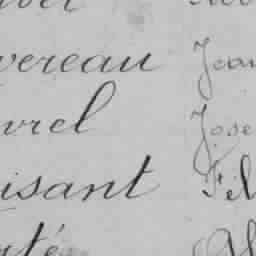 vereau Jean
vrel Jose
isant Fél
rté